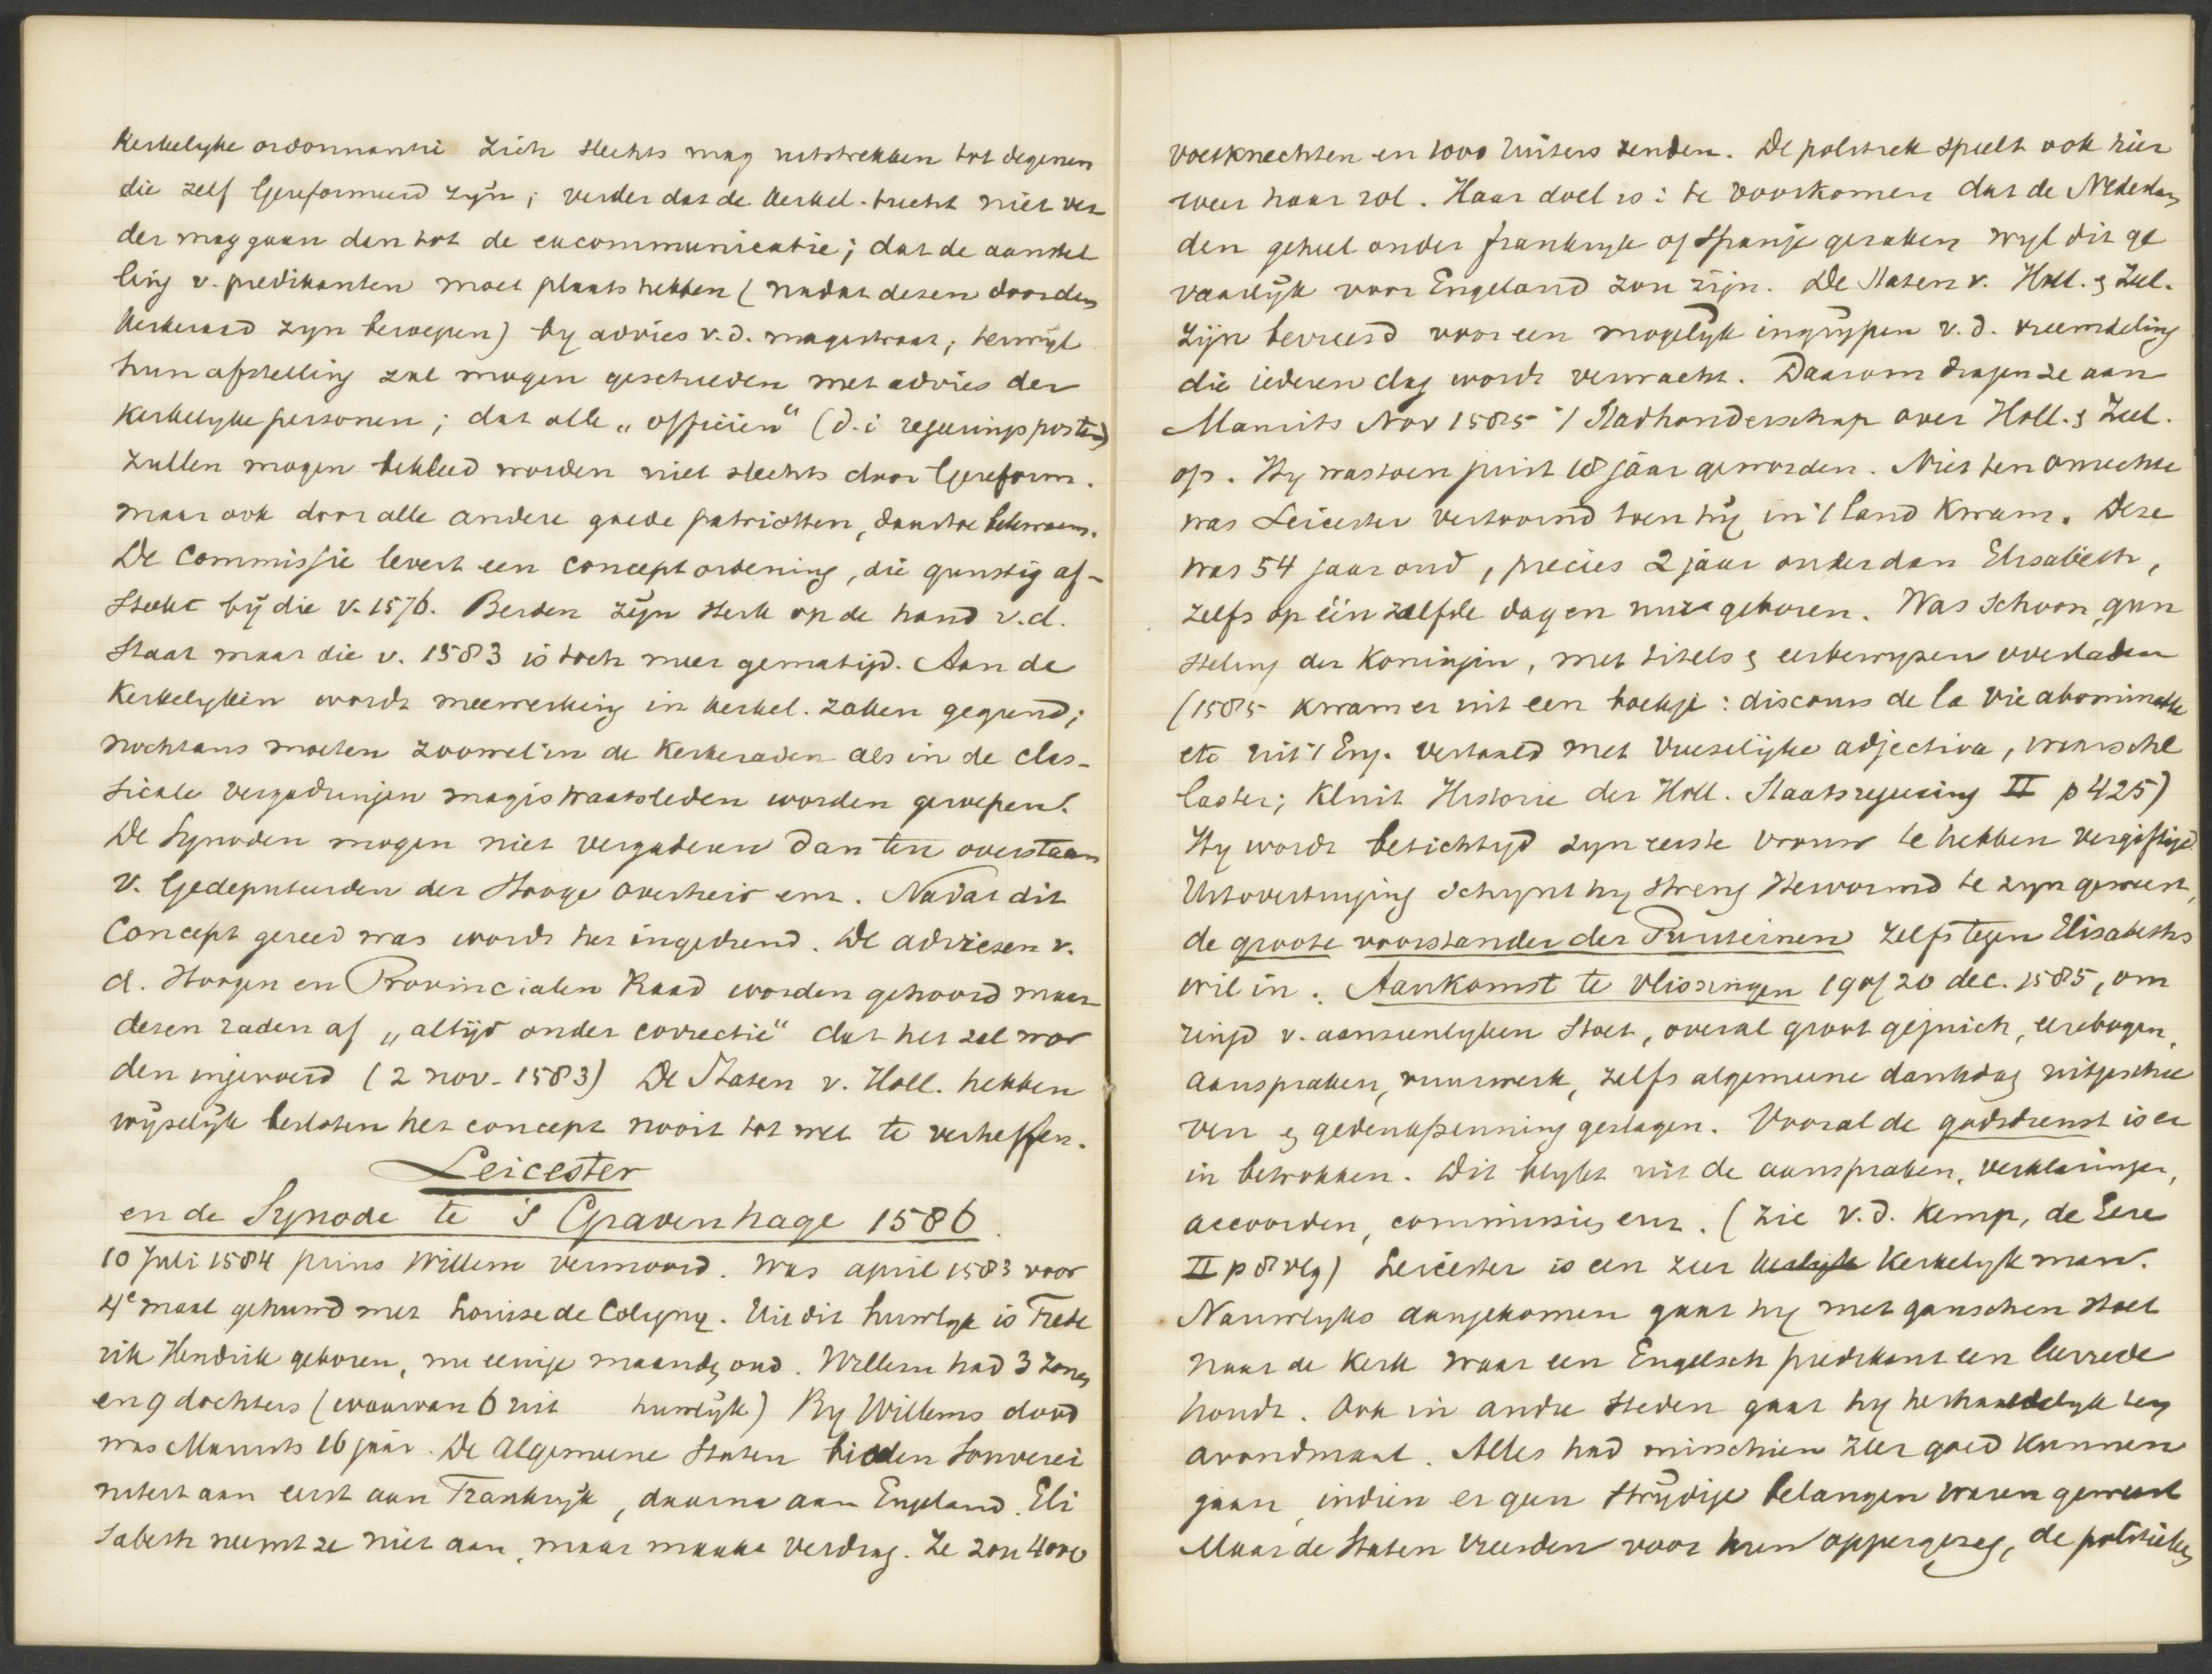 Kerkelyke ordonnantie zich slechts mag uitstrekken tot degenen
die zelf Gereformeerd zyn; verder dat de kerkel. tucht niet ver
der mag gaan dan tot de excommunicatie; dat de aanstel
ling v. predikanten moet plaats hebben (nadat dezen door den
kerkeraad zyn beroepen) by advies v.d. magistraat, terwyl
hun afstelling zal mogen geschieden met advies der
Kerkelyke personen; dat alle „officiën“ (d.i. regeeringsposten)
zullen mogen bekleed worden niet slechts door Gereform.
maar ook door alle andere goede patriotten, daartoe bekwaam.
De Commissie levert een conceptordening, die gunstig af-
steekt bij die v. 1576. Beiden zijn sterk op de hand v.d.
Staat maar die v. 1583 is toch meer gematigd. Aan de
Kerkelyken wordt meewerking in kerkel. zaken gegund;
nochtans moeten zoowel in de Kerkeraden als in de clas-
sicale vergaderingen magistraatsleden worden geroepen.
De Synoden mogen niet vergaderen dan ten overstaan
v. Gedeputeerden der Hooge overheid enz. Nadat dit
Concept gereed was wordt het ingediend. De adviezen v.
d. Hoogen en Provincialen Raad worden gehoord maar
dezen raden af „altijd onder correctie“ dat het zal wor
den ingevoerd (2 nov. 1583) De Staten v. Holl. hebben
wijselijk besloten het concept nooit tot wet te verheffen.
Leicester
en de Synode te 's Gravenhage 1586.
10 Juli 1584 prins Willem vermoord. Was april 1583 voor
4e maal gehuwd met Louise de Coligny. Uit dit huwlyk is Frede
rik Hendrik geboren, nu eenige maanden oud. Willem had 3 zonen
en 9 dochters (waarvan 6 uit huwlijk) By Willems dood
was Maurits 16 jaar. De Algemeene Staten bieden Souverei
niteit aan eerst aan Frankrijk, daarna aan Engeland. Eli
sabeth neemt ze niet aan, maar maakt verdrag. Ze zou 4000
voetknechten en 1000 ruiters zenden. De politiek speelt ook hier
weer haar rol. Haar doel is: te voorkomen dat de Nederlan
den geheel onder frankryk of Spanje geraken wyl dit ge
vaarlijk voor Engeland zou zijn. De Staten v. Holl. & Zeel.
zijn bevreesd voor een mogelijk ingrypen v.d. vreemdeling
die iederen dag wordt verwacht. Daarom dragen ze aan
Maurits Nov 1585 't Stadhouderschap over Holl. & Zeel.
op. Hy was toen juist 18 jaar geworden. Niet ten onrechte
was Leicester vertoornd toen hij in 't land kwam. Deze
was 54 jaar oud, precies 2 jaar ouder dan Elisabeth,
zelfs op één zelfde dag en uur geboren. Was schoon, gun
steling der Koningin, met titels & eerbewyzen overladen
(1585 kwam er uit een boekje: discours de la vie abominable
etc uit 't Eng. vertaald met vreselijke adjectiva, waarschl
laster; Kluit Historie der Holl. Staatsregeering II p 425)
Hy wordt beticht zyn eerste vrouw te hebben vergiftigd
Uit overtuiging schynt hy streng Hervormd te zyn geweest,
de groote voorstander der Puriteinen zelfs tegen Elisabeths
wil in. Aankomst te Vlissingen 19 of 20 dec. 1585, om
ringd v. aanzienlyken stoet, overal groot gejuich, eerebogen,
aanspraken, vuurwerk, zelfs algemeene dankdag uitgeschre
ven & gedenkpenning geslagen. Vooral de godsdienst is er
in betrokken. Dit blykt uit de aanspraken, verklaringen,
accoorden, commissies enz. (Zie v.d. Kemp, de Eere
II p 8 vlg) Leicester is een zeer Kerkelyk man.
Nauwlyks aangekomen gaat hy met ganschen stoet
naar de Kerk waar een Engelsch predikant een leerrede
houdt. Ook in andre steden gaat hy herhaaldelyk ten
avondmaal. Alles had misschien zeer goed kunnen
gaan, indien er geen strijdige belangen waren geweest
Maar de Staten vreesden voor hun oppergezag, de politieke